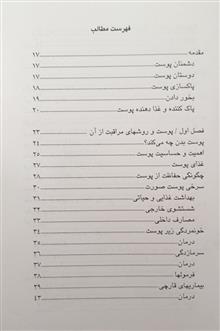 فهرست مطالب
مقدمه ۱۷
دشمنان پوست ۱۷
دوستان پوست ۱۷
پاکسازی پوست ۱۸
بخور دادن ۱۹
پاک کننده و غذا دهنده پوست ۲۰
فصل اول / پوست و روشهای مراقبت از آن ۲۳
پوست بدن چه می‌کند؟ ۲۴
اهمیت و حساسیت پوست ۲۵
غذای پوست ۲۷
چگونگی حفاظت از پوست ۲۸
سرخی پوست صورت ۳۰
بهداشت غذایی و حیاتی ۳۱
شستشوی خارجی ۳۲
مصارف داخلی ۳۳
خونمردگی زیر پوست ۳۴
درمان ۳۵
سرمازدگی ۳۵
درمان ۳۷
فرمولها ۳۸
بیماریهای قارچی ۳۹
درمان ۴۳